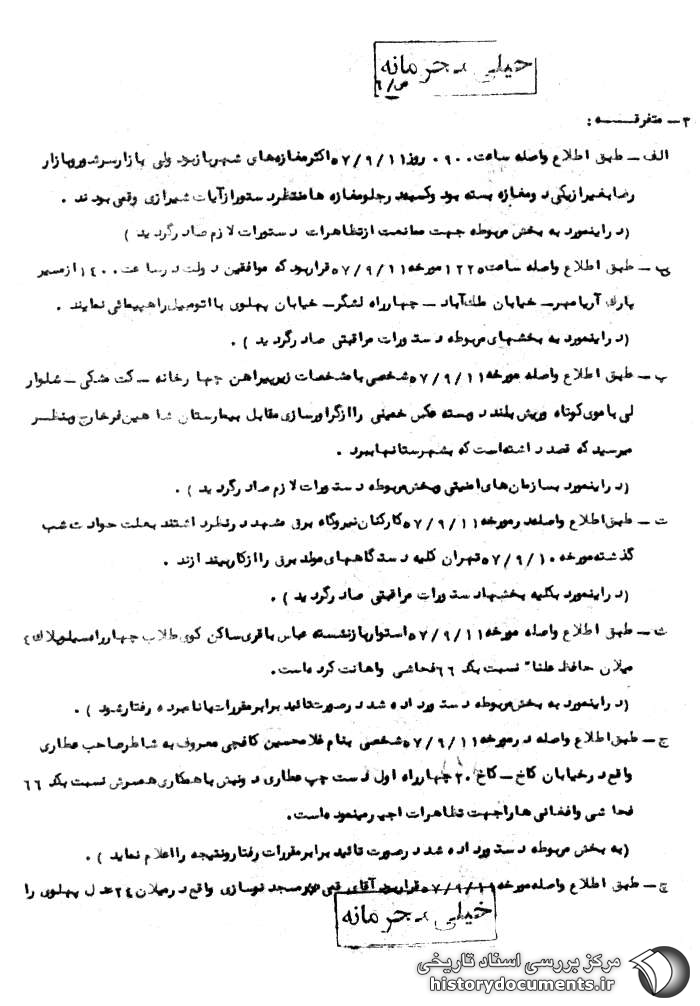 خیلی محرمانه
ص/۶
۳- متفرقــــه :
الف – طبق اطلاع واصله ساعت ۰۹۰۰ روز ۵۷/۹/۱۱ اکثر مغازه های شهر باز بود ولی بازار سرشور و بازار
رضا بغیر از یکی دو مغازه بسته بود و کسبه در جلو مغازه ها منتظر دستور از آیات شیرازی وقمی بودند .
(در اینمورد به بخش مربوطه جهت ممانعت از تظاهرات دستورات لازم صادر گردید )
ب – طبق اطلاع واصله ساعت ۱۲۲۵ مورخه ۵۷/۹/۱۱ قرار بود که موافقین دولت در ساعت ۱۴۰۰ از مسیر
پارک آریامهر – خیابان ملک آباد – چهار راه لشگر – خیابان پهلوی با اتومبیل راهپیمائی نمایند .
(در اینمورد به بخشهای مربوطه دستورات مراقبتی صادر گردید ) .
پ – طبق اطلاع واصله مورخه ۵۷/۹/۱۱ شخصی با مشخصات زیر پیراهن چهارخانه – کت مشکی – شلوار
لی با موی کوتاه وریش بلند دو بسته عکس خمینی را از گراورسازی مقابل بیمارستان شاهین فر خارج وبنظــر
میرسید که قصد داشته است که بشهرستانها ببرد .
(در اینمورد بسازمان های امنیتی وبخش مربوطه دستورات لازم صادر گردید ) .
ت – طبق اطلاع واصله در مورخه ۵۷/۹/۱۱ کارکنان نیروگاه برق مشهد در نظر داشتند بعلت حوادث شب
گذشته مورخه ۵۷/۹/۱۰ تهران کلیه دستگاههای مولد برق را از کار بیندازند .
(در اینمورد بکلیه بخشها دستورات مراقبتی صادر گردید ) .
ث – طبق اطلاع واصله مورخه ۵۷/۹/۱۱ استوار بازنشسته عباس باقری ساکن کوی طلاب چهارراه سیلو پلاک ٤
میلان حافظ علنا" نسبت بکد ۶۶ فحاشی واهانت کرده است.
(در اینمورد به بخش مربوطه دستور داده شد در صورت تائید برابر مقررات با نامبرده رفتار شود ) .
ج – طبق اطلاع واصله در مورخه ۵۷/۹/۱۱ شخصی بنام غلامحسین کافچی معروف به شاطر صاحب عطاری
واقع در خیابان کاخ – کاخ ۲۰ چهارراه اول دست چپ عطاری دونبش با همکاری همسرش نسبت بکد ۶۶
فحاشی وافغانی ها را جهت تظاهرات اجیر مینموده است.
(به بخش مربوطه دستور داده شد در صورت تائید برابر مقررات رفتار ونتیجه را اعلام نماید ) .
چ – طبق اطلاع واصله مورخه ۵۷/۹/۱۱ قرار بود آقای قمی در مسجد نوسازی واقع در میلان ۲۴ عدل پهلوی را
خیلی محرمانه
مرکز بررسی اسناد تاریخی
historydocuments.ir